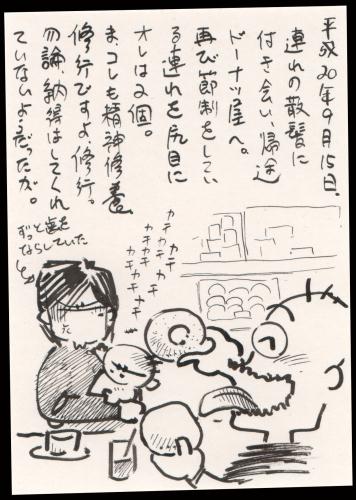 平成20年9月15日、
連れの散髪に
付き合い、帰途
ドーナツ屋へ。
再び節制をしてい
る連れを尻目に
オレは2個。
ま、コレも精神修養、
修行ですよ、修行。
勿論、納得はしてくれ
ていないようだったが。
ずっと歯を
ならしていた
カチカチカチ
カチカチカチ
カチカチカチ